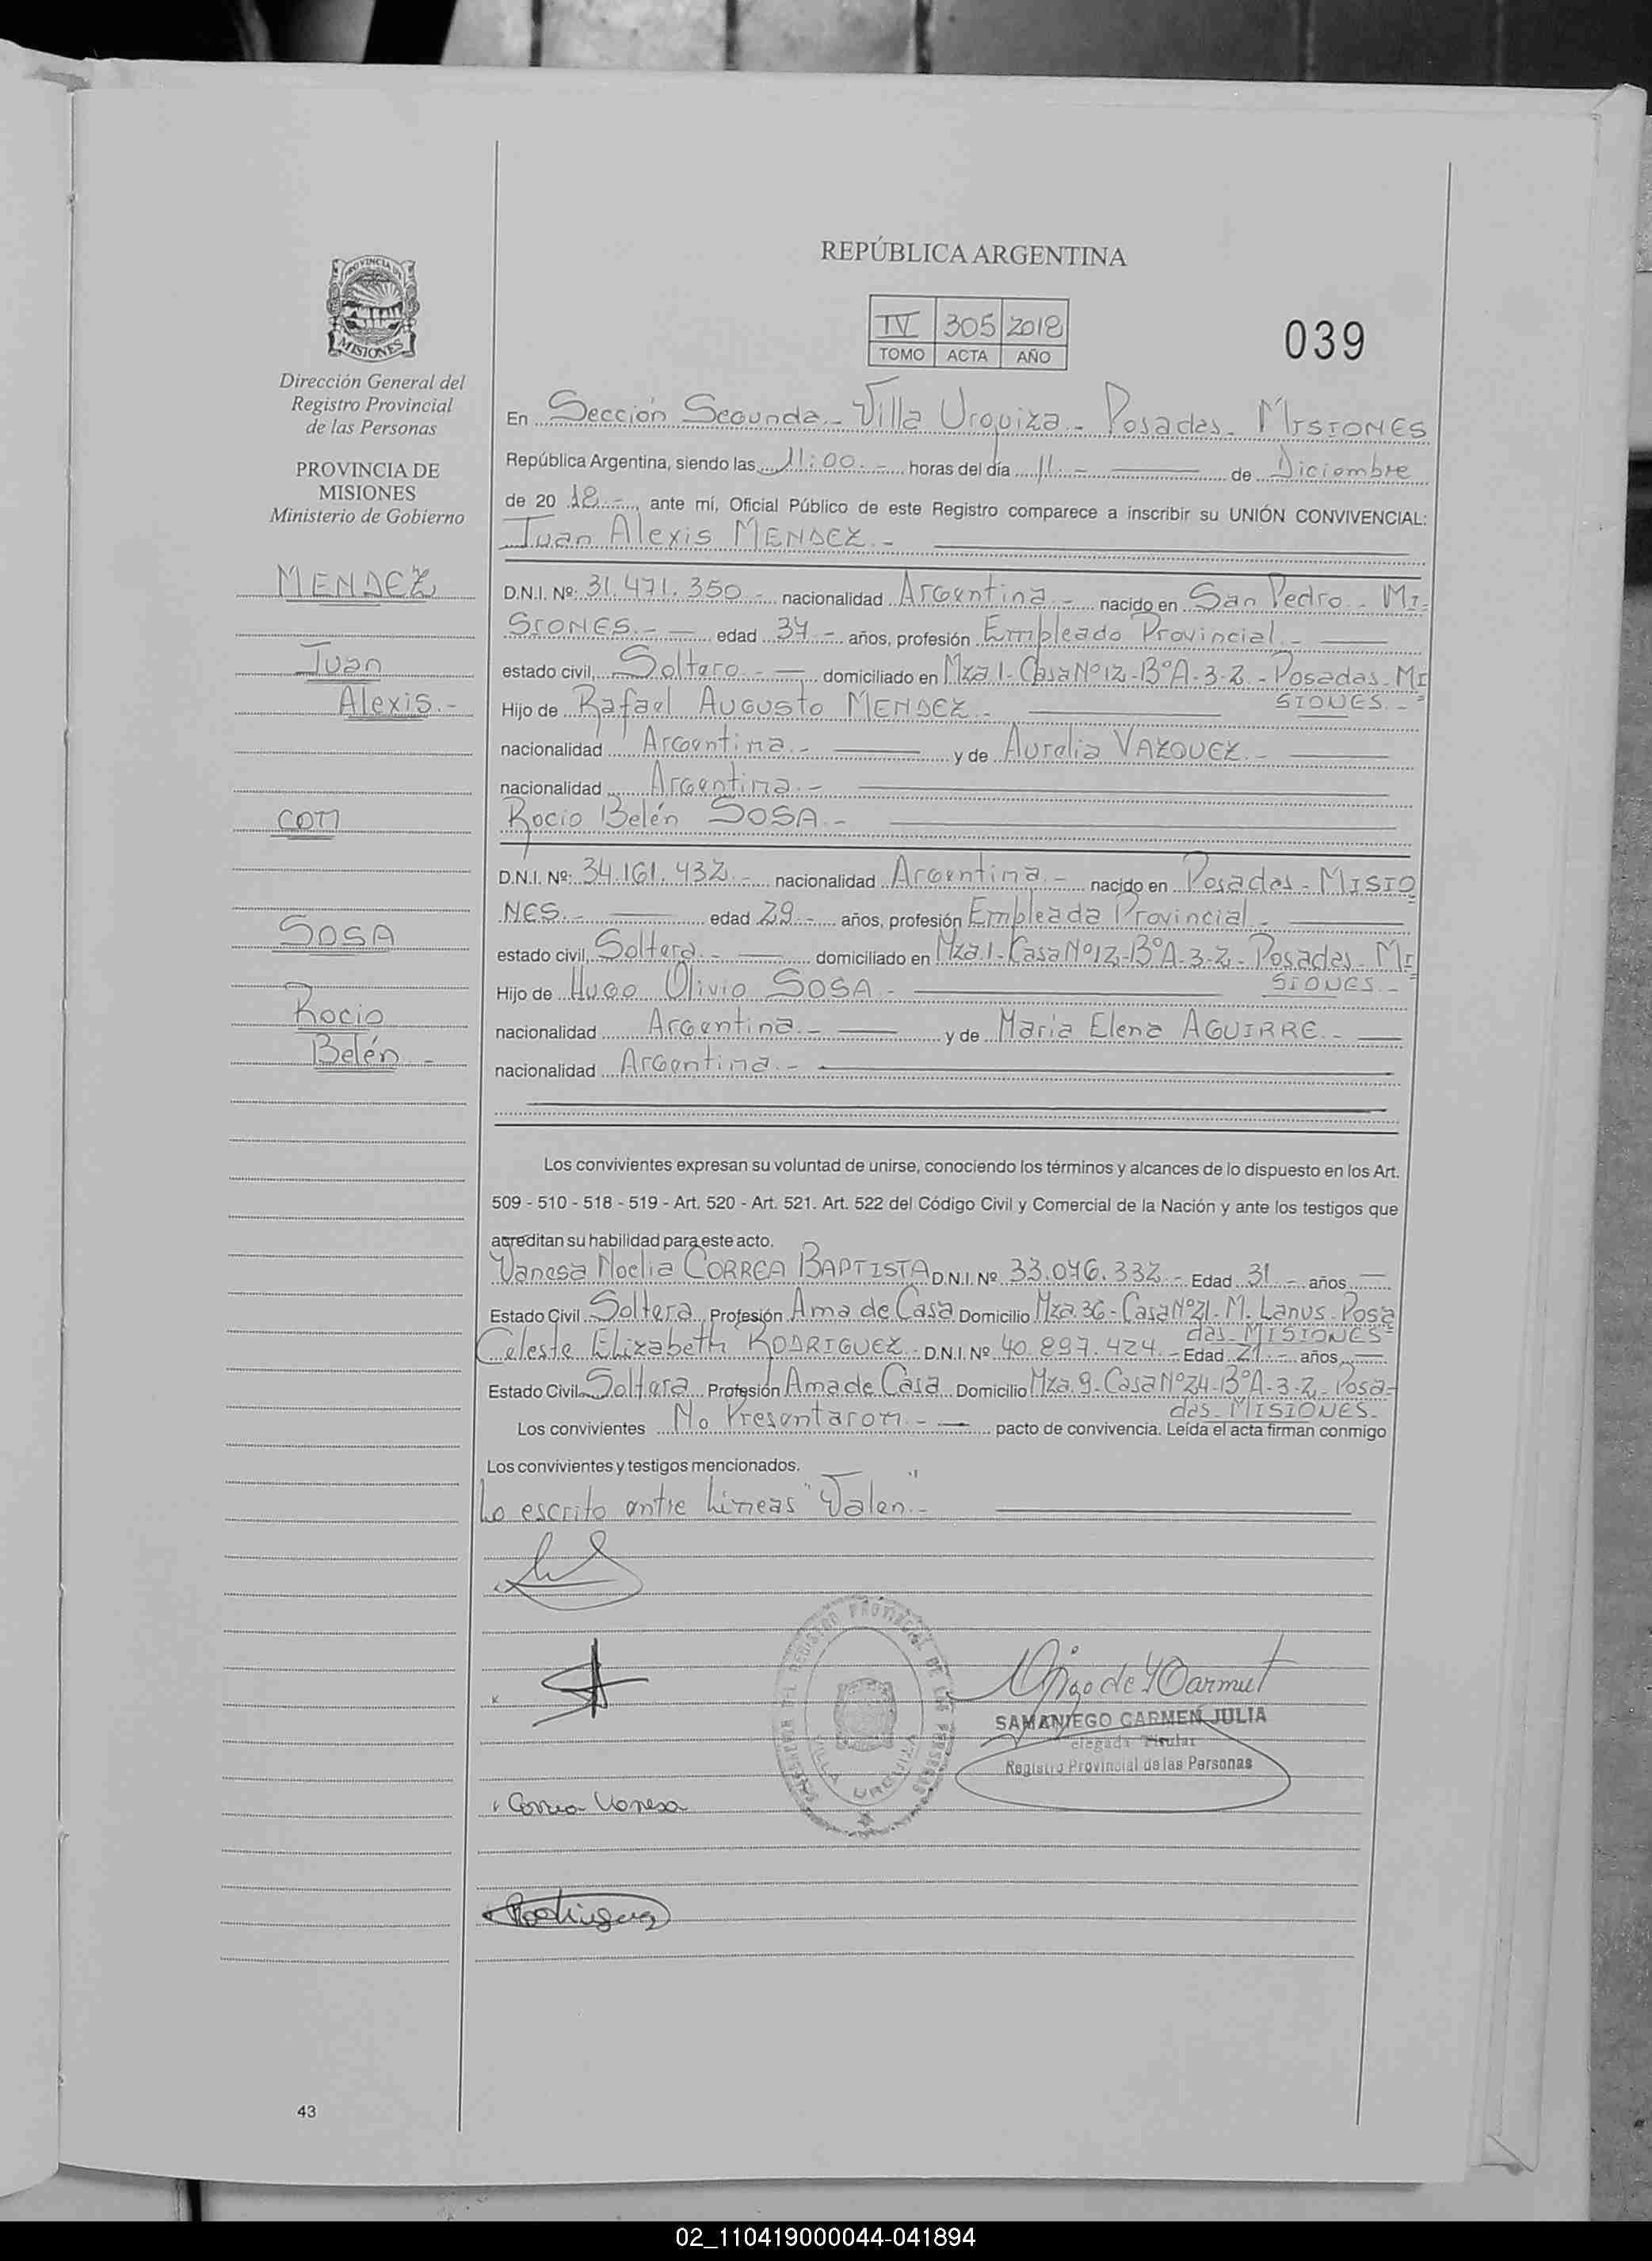 REPÚBLICA ARGENTINA
IV 305 2018
TOMO ACTA AÑO
039
PROVINCIA DE
MISIONES
Dirección General del
Registro Provincial
de las Personas
PROVINCIA DE
MISIONES
Ministerio de Gobierno
MENDEZ
Juan
Alexis.-
con
SOSA
Rocio
Belén -
En Sección Segunda.- Villa Urquiza - Posadas - MISIONES
República Argentina, siendo las 11:00.- horas del día 11.- de Diciembre
de 2018.-, ante mí, Oficial Público de este Registro comparece a inscribir su UNIÓN CONVIVENCIAL:
Juan Alexis MENDEZ.-
D.N.I. Nº: 31.471.350.- nacionalidad Argentina.- nacido en San Pedro - MI=
SIONES.- edad 34.- años, profesión Empleado Provincial.-
estado civil, Soltero.- domiciliado en Mza 1- Casa Nº12-Bº A-3-2.- Posadas-MI
SIONES.-
Hijo de Rafael Augusto MENDEZ.-
nacionalidad Argentina.- y de Aurelia VAZQUEZ.-
nacionalidad Argentina.-
Rocio Belén SOSA.-
D.N.I. Nº: 34.161.432.- nacionalidad Argentina.- nacido en Posadas - MISIO
NES.- edad 29.- años, profesión Empleada Provincial.-
estado civil, Soltera.- domiciliado en Mza.1-Casa Nº12-Bº A-3-2- Posadas - MI=
SIONES.-
Hijo de Hugo Olivio SOSA.-
nacionalidad Argentina.- y de Maria Elena AGUIRRE.-
nacionalidad Argentina.-
Los convivientes expresan su voluntad de unirse, conociendo los términos y alcances de lo dispuesto en los Art.
509 - 510 - 518 - 519 - Art. 520 - Art. 521. Art. 522 del Código Civil y Comercial de la Nación y ante los testigos que
acreditan su habilidad para este acto.
Vanesa Noelia CORREA BAPTISTA D.N.I. Nº 33.046.332.- Edad 31.- años
Estado Civil Soltera Profesión Ama de Casa Domicilio Mza.36-Casa Nº21-M. Lanus-Posa
das-MISIONES=
Celeste Elizabeth RODRIGUEZ.- D.N.I. Nº 40.897.424.- Edad 21.- años
Estado Civil Soltera Profesión Ama de Casa Domicilio Mza.9-Casa Nº24-Bº A-3-2-Posa-
das-MISIONES-
Los convivientes No Presentaron.- pacto de convivencia. Leída el acta firman conmigo
Los convivientes y testigos mencionados.
Lo escrito entre Lineas "Valen".-
SAMANIEGO CARMEN JULIA
Delegada Titular
Registro Provincial de las Personas
REGISTRO PROVINCIAL DE LAS PERSONAS
VILLA URQUIZA
Correa Vanesa
Rodriguez
43
02_110419000044-041894